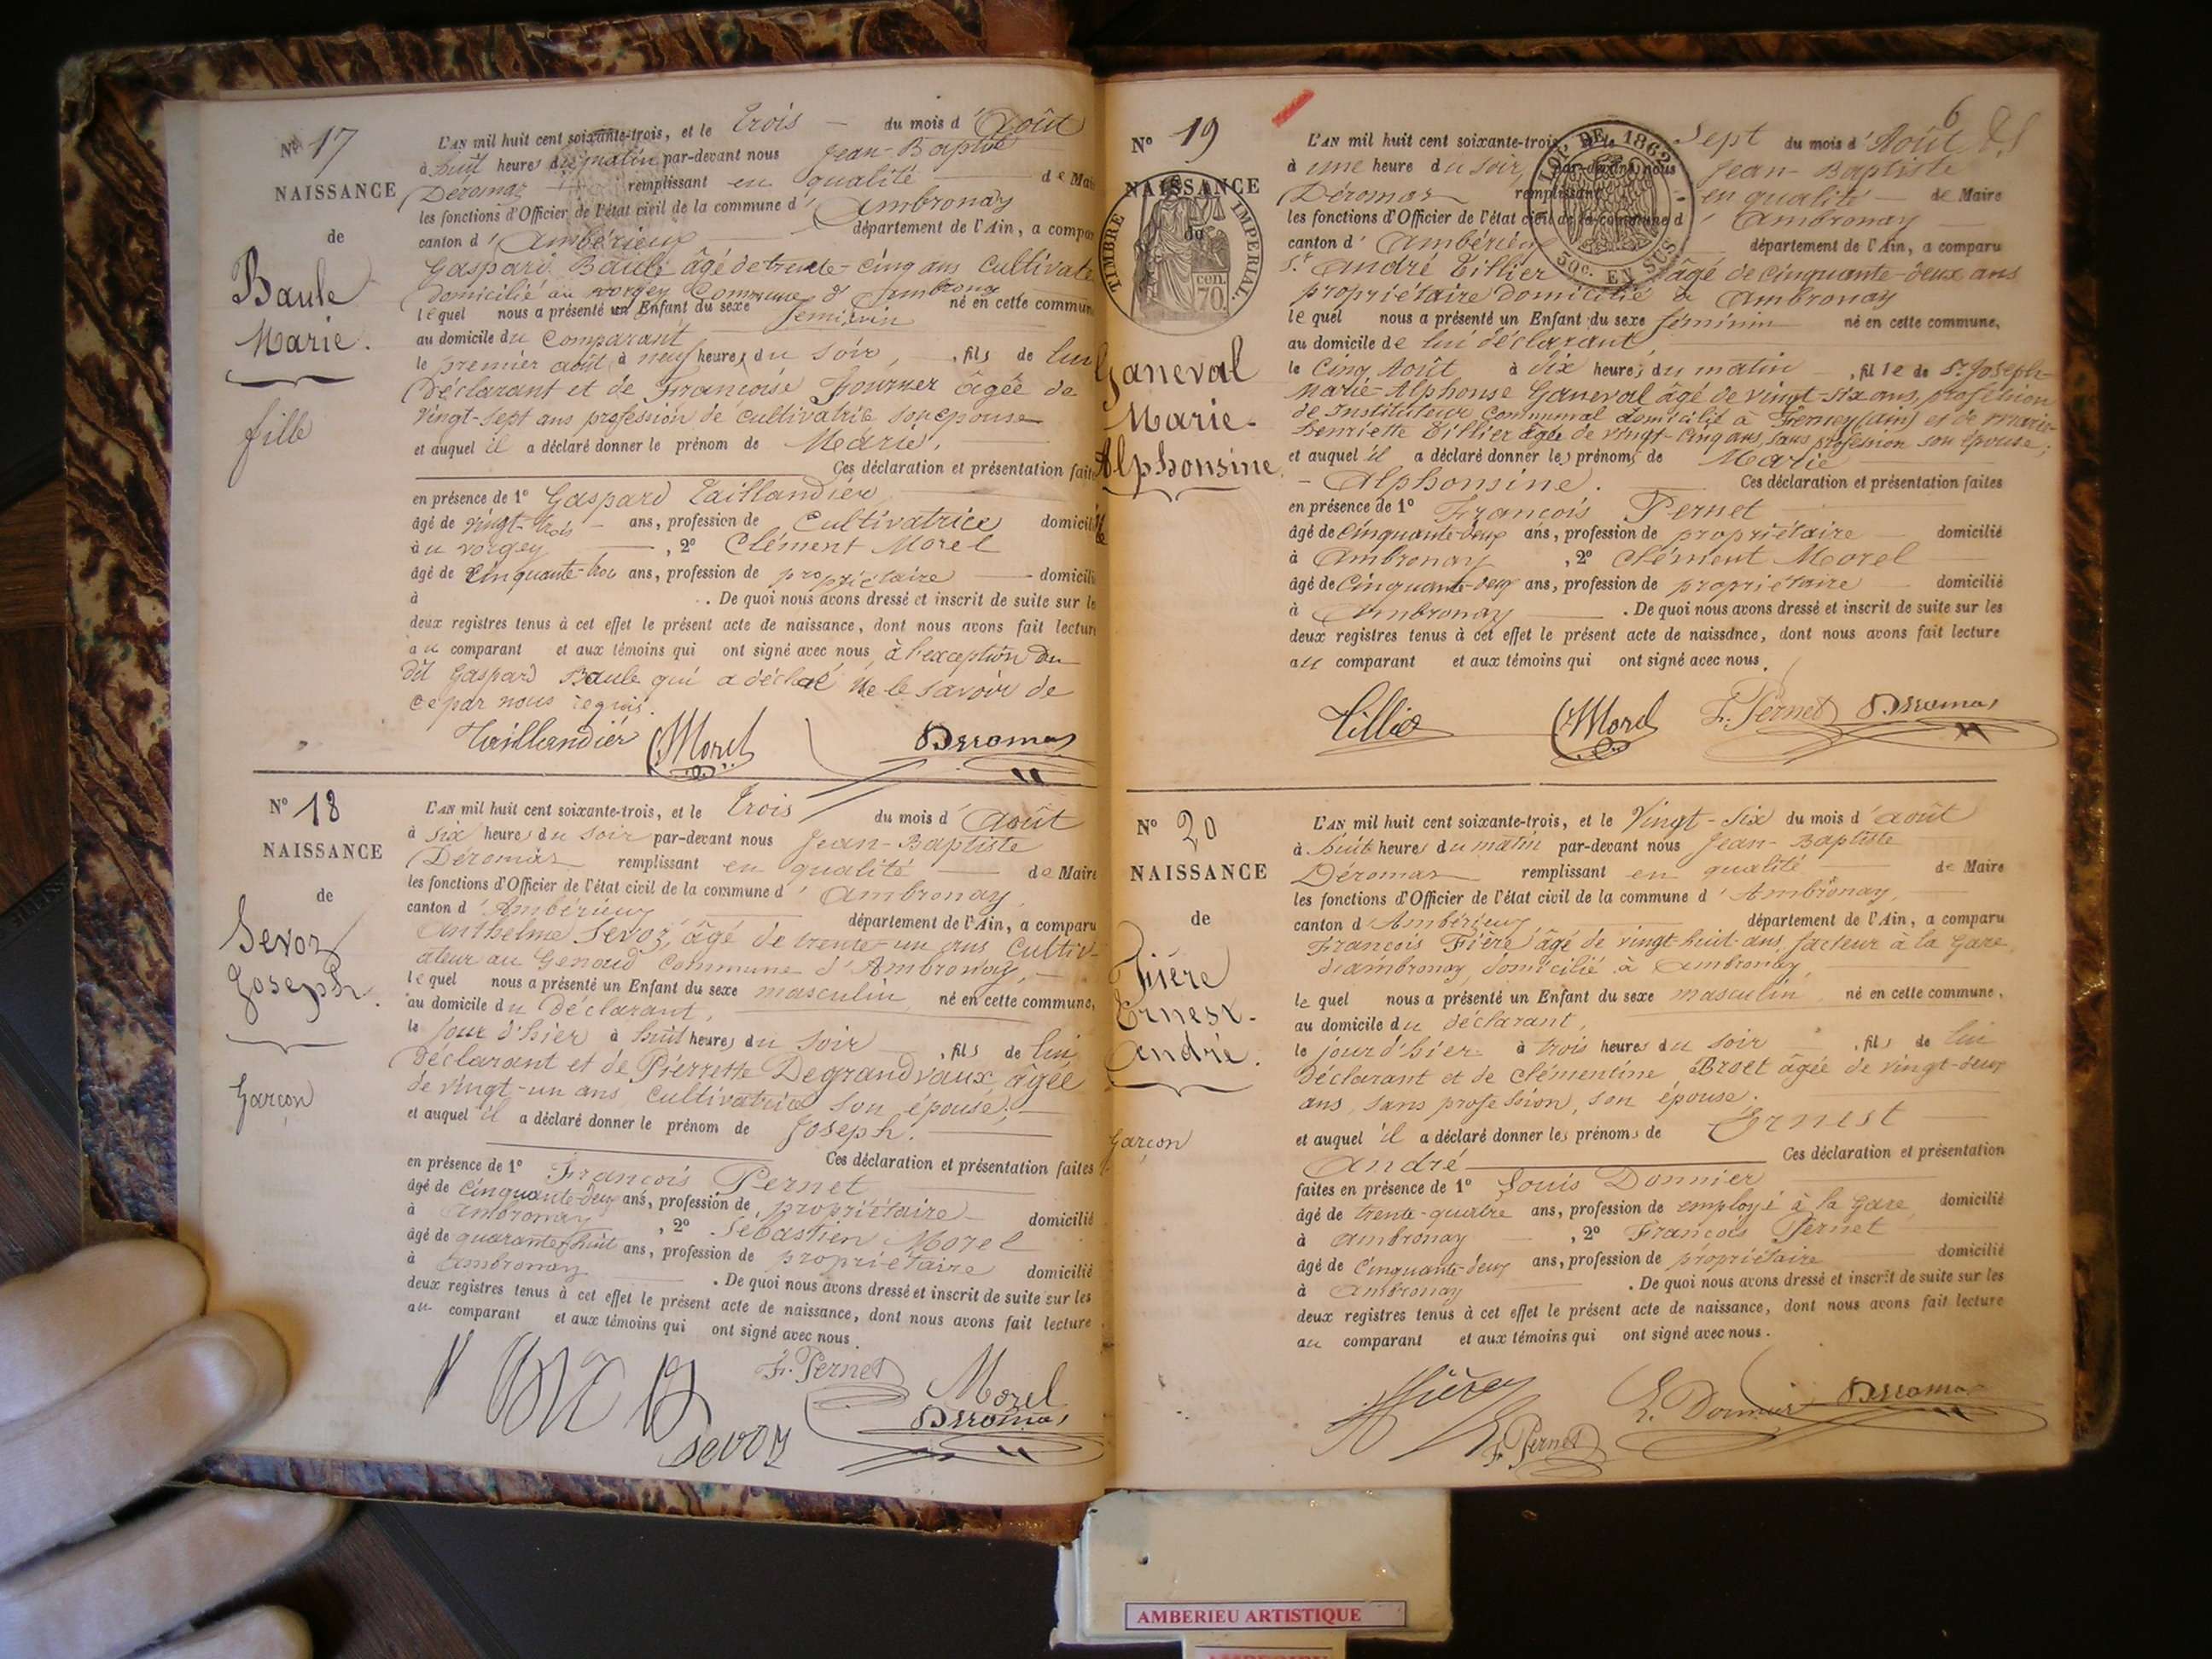 Nº 17
NAISSANCE
de
Baule
Marie.
fille
L'AN mil huit cent soixante-trois, et le trois du mois d'Août
à huit heures du matin par-devant nous Jean-Baptiste
Déromas remplissant en qualité de Mai
les fonctions d'Officier de l'état civil de la commune d'Ambronay
canton d'Ambérieux département de l'Ain, a compa
Gaspard Baule âgé de trente-cinq ans cultivate
domicilié au vorgey Commune d'Ambronay
lequel nous a présenté un Enfant du sexe féminin né en cette commun
au domicile du Comparant
le premier août à neuf heures du soir, fils de lui
Déclarant et de Françoise Fournier âgée de
vingt-sept ans profession de cultivatrice son épouse
et auquel il a déclaré donner le prénom de Marie.
Ces déclaration et présentation faite
en présence de 1º Gaspard Taillandier
âgé de vingt-trois ans, profession de Cultivatrice domicili
au vorgey, 2º Clément Morel
âgé de Cinquante-trois ans, profession de propriétaire domicili
à . De quoi nous avons dressé et inscrit de suite sur le
deux registres tenus à cet effet le présent acte de naissance, dont nous avons fait lectur
au comparant et aux témoins qui ont signé avec nous, à l'exception du
dit Gaspard Baule qui a déclaré ne le savoir de
ce par nous requis.
Taillandier CMorel Derromas
Nº 18
NAISSANCE
de
Sevoz
Joseph.
Garçon
L'AN mil huit cent soixante-trois, et le trois du mois d'Août
à six heures du soir par-devant nous Jean-Baptiste
Déromas remplissant en qualité de Maire
les fonctions d'Officier de l'état civil de la commune d'Ambronay,
canton d'Ambérieux département de l'Ain, a comparu
Anthelme Sevoz, âgé de trente-un ans Cultiv-
ateur au Genoud Commune d'Ambronay,
lequel nous a présenté un Enfant du sexe masculin né en cette commune,
au domicile du Déclarant,
le jour d'hier à huit heures du soir, fils de lui
Déclarant et de Pierrette Degrandvaux, âgée
de vingt-un ans, cultivatrice son épouse;
et auquel il a déclaré donner le prénom de Joseph.
Ces déclaration et présentation faites
en présence de 1º François Pernet
âgé de cinquante-deux ans, profession de propriétaire
à Ambronay, 2º Sébastien Morel domicilié
âgé de quarante-huit ans, profession de propriétaire
à Ambronay domicilié
. De quoi nous avons dressé et inscrit de suite sur les
deux registres tenus à cet effet le présent acte de naissance, dont nous avons fait lecture
au comparant et aux témoins qui ont signé avec nous.
F. Pernet Morel
Sevoz Derromas
6
Nº 19
NAISSANCE
de
TIMBRE IMPERIAL
cen. 70.
LOI DE 1862
50c. EN SUS
Ganeval
Marie-
Alphonsine.
L'AN mil huit cent soixante-trois, et le Sept du mois d'Août
à une heure du soir, par-devant nous Jean-Baptiste
Déromas remplissant en qualité de Maire
les fonctions d'Officier de l'état civil de la commune d'Ambronay
canton d'Ambérieux département de l'Ain, a comparu
Sr André Tillier âgé de cinquante-deux ans
propriétaire domicilié à Ambronay
lequel nous a présenté un Enfant du sexe féminin né en cette commune,
au domicile de lui déclarant,
le Cinq Août à dix heures du matin, fille de Sr Joseph-
Marie-Alphonse Ganeval âgé de vingt-six ans, profession
de Instituteur Communal domicilié à Ferney (ain) et de marie-
henriette Tillier âgée de vingt-cinq ans, sans profession son épouse;
et auquel il a déclaré donner les prénoms de Marie
- Alphonsine. Ces déclaration et présentation faites
en présence de 1º François Pernet
âgé de cinquante-deux ans, profession de propriétaire domicilié
à Ambronay, 2º Clément Morel
âgé de cinquante-deux ans, profession de propriétaire domicilié
à Ambronay . De quoi nous avons dressé et inscrit de suite sur les
deux registres tenus à cet effet le présent acte de naissance, dont nous avons fait lecture
au comparant et aux témoins qui ont signé avec nous.
Tillier CMorel F. Pernet Derromas
Nº 20
NAISSANCE
de
Fière
Ernest-
André.
Garçon
L'AN mil huit cent soixante-trois, et le Vingt-Six du mois d'août
à huit heures du matin par-devant nous Jean-Baptiste
Déromas remplissant en qualité de Maire
les fonctions d'Officier de l'état civil de la commune d'Ambronay,
canton d'Ambérieux département de l'Ain, a comparu
François Fière âgé de vingt-huit ans, facteur à la Gare
d'ambronay, domicilié à Ambronay,
lequel nous a présenté un Enfant du sexe masculin né en cette commune,
au domicile du déclarant,
le jour d'hier à trois heures du soir, fils de lui
Déclarant et de Clémentine Broet âgée de vingt-deux
ans, sans profession, son épouse.
et auquel il a déclaré donner les prénoms de Ernest
André Ces déclaration et présentation
faites en présence de 1º Louis Donnier
âgé de trente-quatre ans, profession de employé à la Gare, domicilié
à Ambronay, 2º François Pernet
âgé de Cinquante-deux ans, profession de propriétaire domicilié
à Ambronay . De quoi nous avons dressé et inscrit de suite sur les
deux registres tenus à cet effet le présent acte de naissance, dont nous avons fait lecture
au comparant et aux témoins qui ont signé avec nous.
Fière L. Donnier Derromas
F. Pernet
AMBERIEU ARTISTIQUE